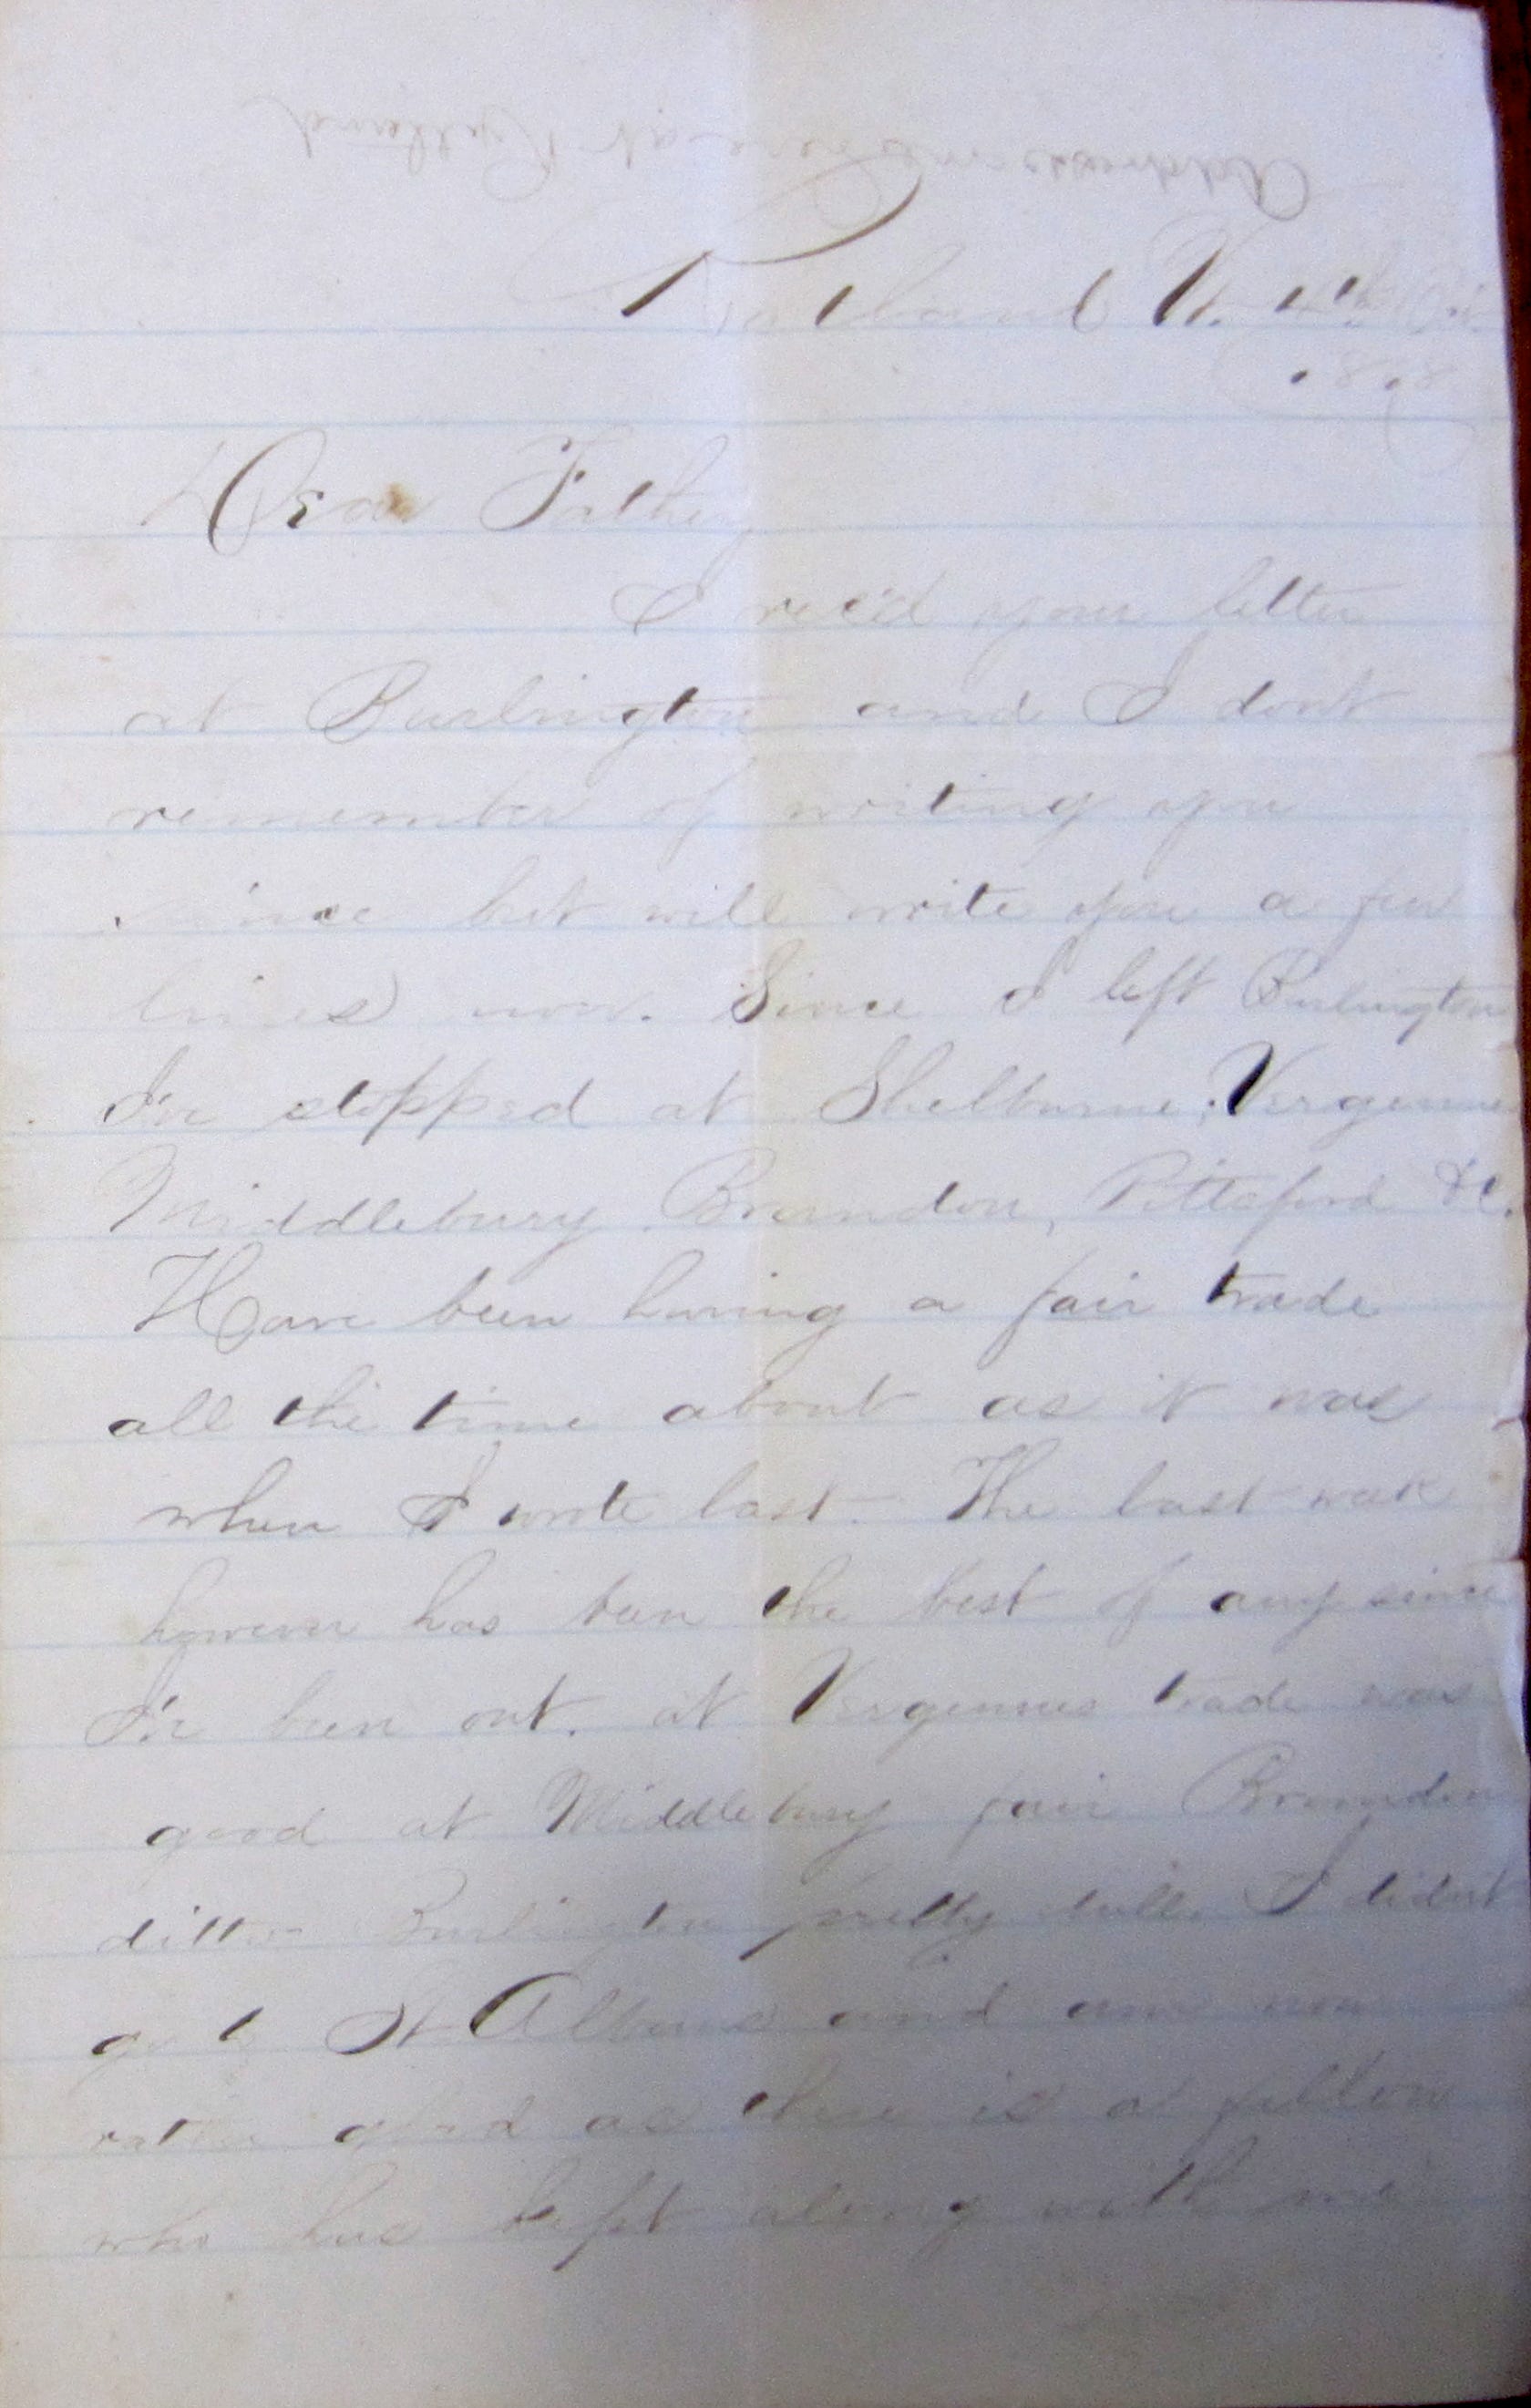 Address me here at Rutland
Rutland Vt. 4th Oct
Dear Father
I rec'd your letter
at Burlington and I dont
remember of writing you
since but will write you a few
lines now. Since I left Burlington
I've stopped at Shelburne, Vergennes
Middlebury, Brandon, Pittsford &c.
Have been having a fair trade
all the time about as it was
when I wrote last. The last week
however has been the best of any since
I've been out. at Vergennes trade was
good at Middlebury fair Brandon
ditto Burlington pretty dull. I didn't
go to St Albans and am now
rather glad as there is a fellow
who has kept along with me